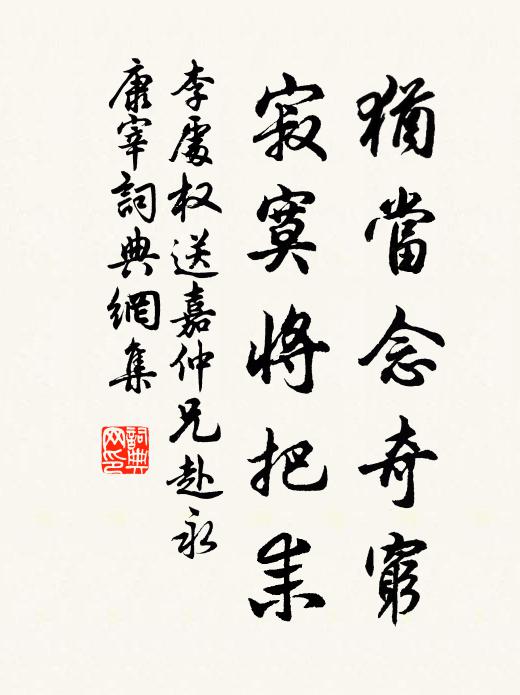 猶當念奇窮
寂寞將把耒
李處权送嘉仲兄赴永
康宰詞典網集
詞典
网印